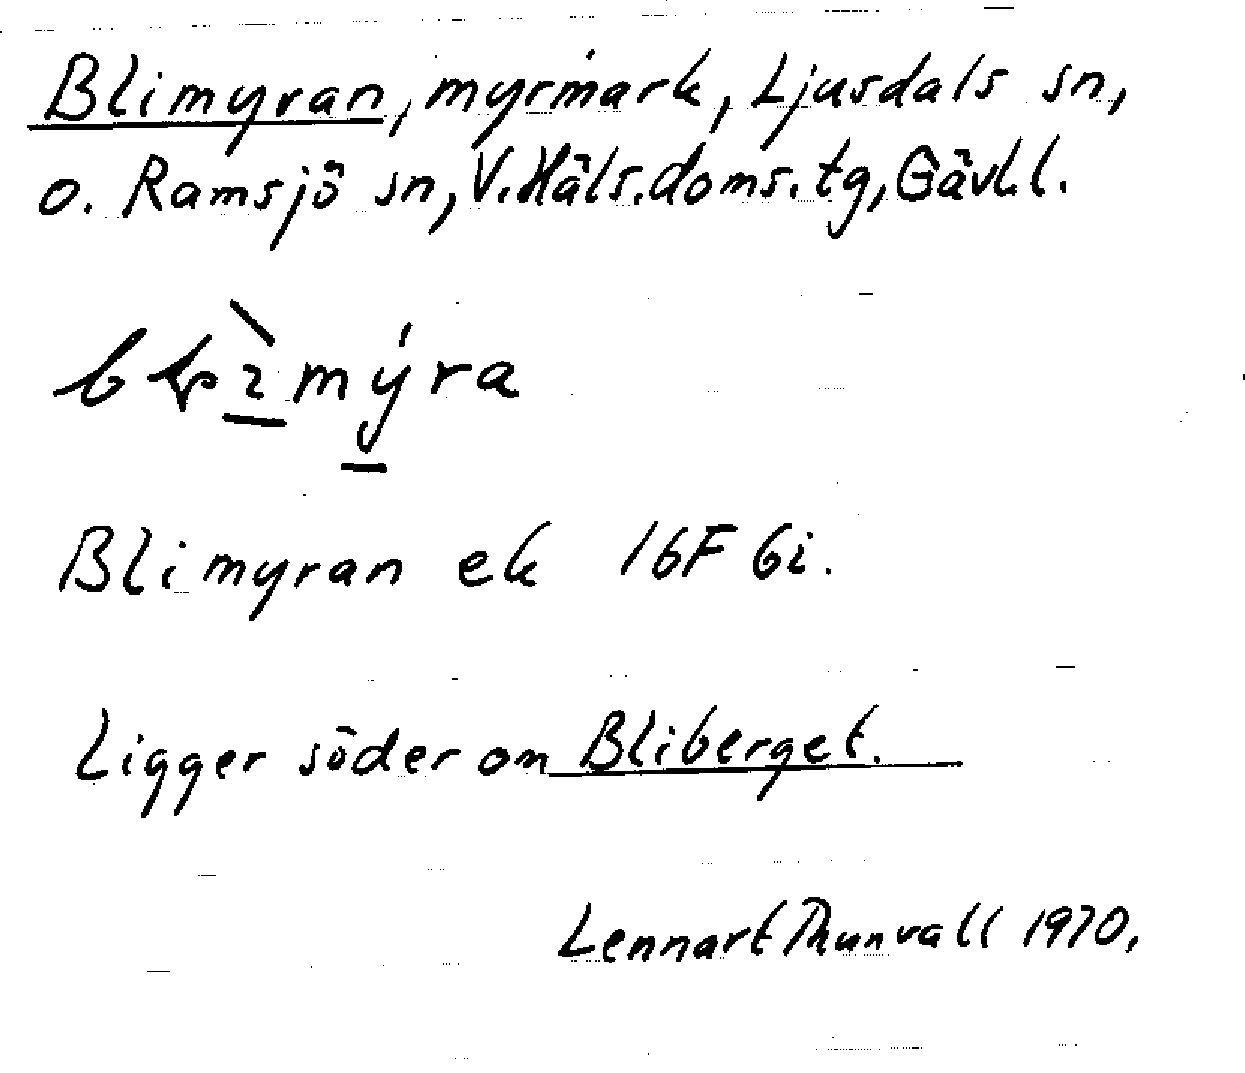 Blimyran, myrmark, Ljusdals sn,
o. Ramsjö sn, V. Häls. doms. tg, Gävl. l.
mýra
Blimyran ek 16F 6i.
Ligger söder om Bliberget.
Lennart Thunvall 1970.